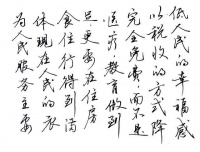 为人民服务主要
体现在人民的衣
食住行得到满
足更要在住房
医疗、教育做到
完全免费,而不是
以税收的方式降
低人民的幸福感